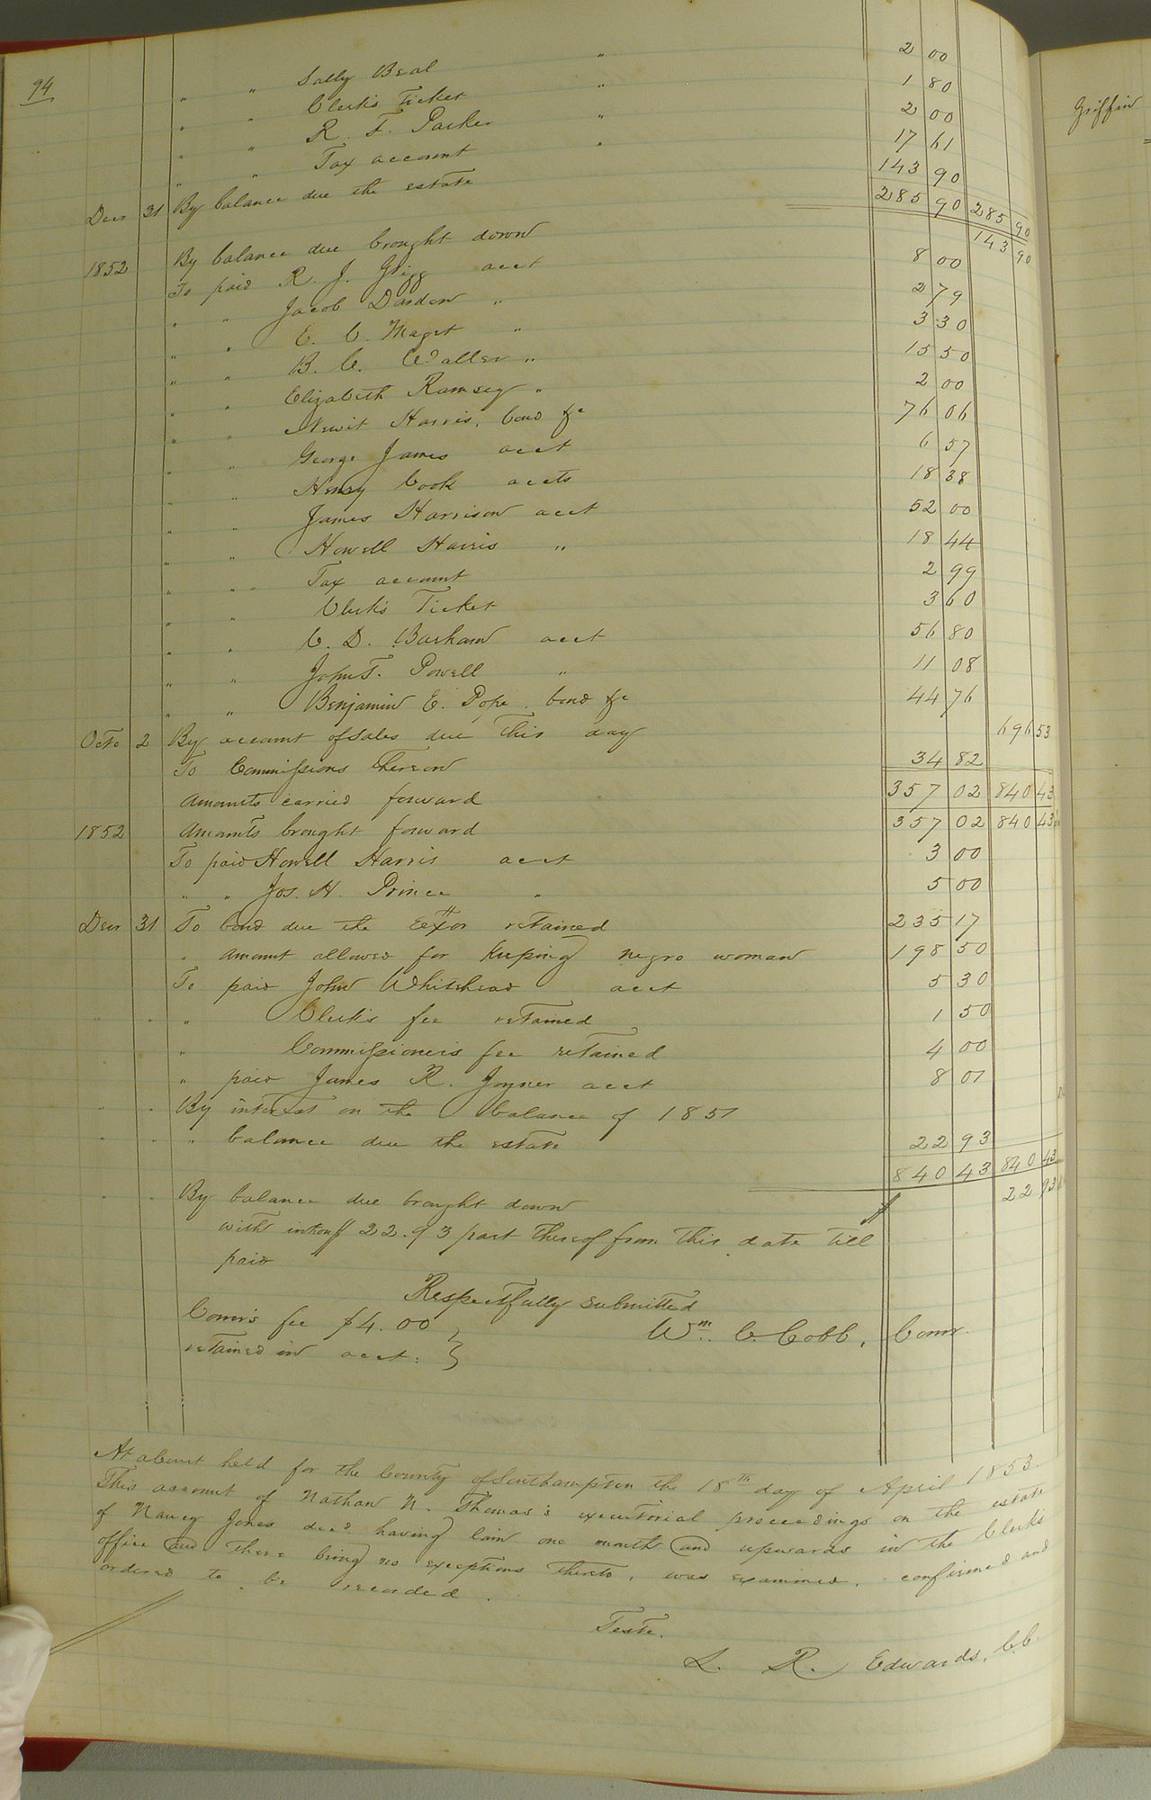 94
" " Sally Beal " 2 00
" " Clerk's Ticket " 1 80
" " R. F. Parker " 2 00
" " Tax account " 17 61
Decr 31 By balance due the estate 143 90
285 90 285 90
1852 By balance due brought down 143 90
To paid R. J. Grigg acct 8 00
" " Jacob Darden " 2 79
" " C. C. Maget " 3 30
" " B. C. Waller " 15 50
" " Elizabeth Ramsey " 2 00
" " Newit Harris, bond &c 76 06
" " George James acct 6 57
" " Henry Cook accts 18 38
" " James Harrison acct 52 00
" " Howell Harris " 18 44
" " Tax account 2 99
" " Clerk's Ticket 3 60
" " C. D. Barham acct 56 80
" " John T. Powell " 11 08
" " Benjamin E. Pope bond &c 44 76
Octo 2 By account of sales due this day 696 53
To Commissions thereon 34 82
Amounts carried forward 357 02 840 43
1852 Amounts brought forward 357 02 840 43
To paid Howell Harris acct 3 00
" " Jos. H. Prince " 5 00
Decr 31 To bond due the Exor retained 235 17
" amount allowed for keeping negro woman 198 50
To paid John Whitehead acct 5 30
" Clerk's fee retained 1 50
" Commissioner's fee retained 4 00
" paid James R. Joyner acct 8 01
By interest on the balance of 1851
" balance due the estate 22 93
840 43 840 43
By balance due brought down 22 93
with int on $22.93 part thereof from this date till
paid
Respectfully submitted
Comr's fee $4.00 } Wm. C. Cobb, Comr.
retained in acct: }
At a Court held for the County of Southampton the 18th day of April 1853.
This account of Nathan N. Thomas's executorial proceedings on the estate
of Nancy Jones decd having lain one month and upwards in the Clerks
office and there being no exceptions thereto, was examined, confirmed and
ordered to be recorded.
Teste.
L. R. Edwards, C.C.
Griffin